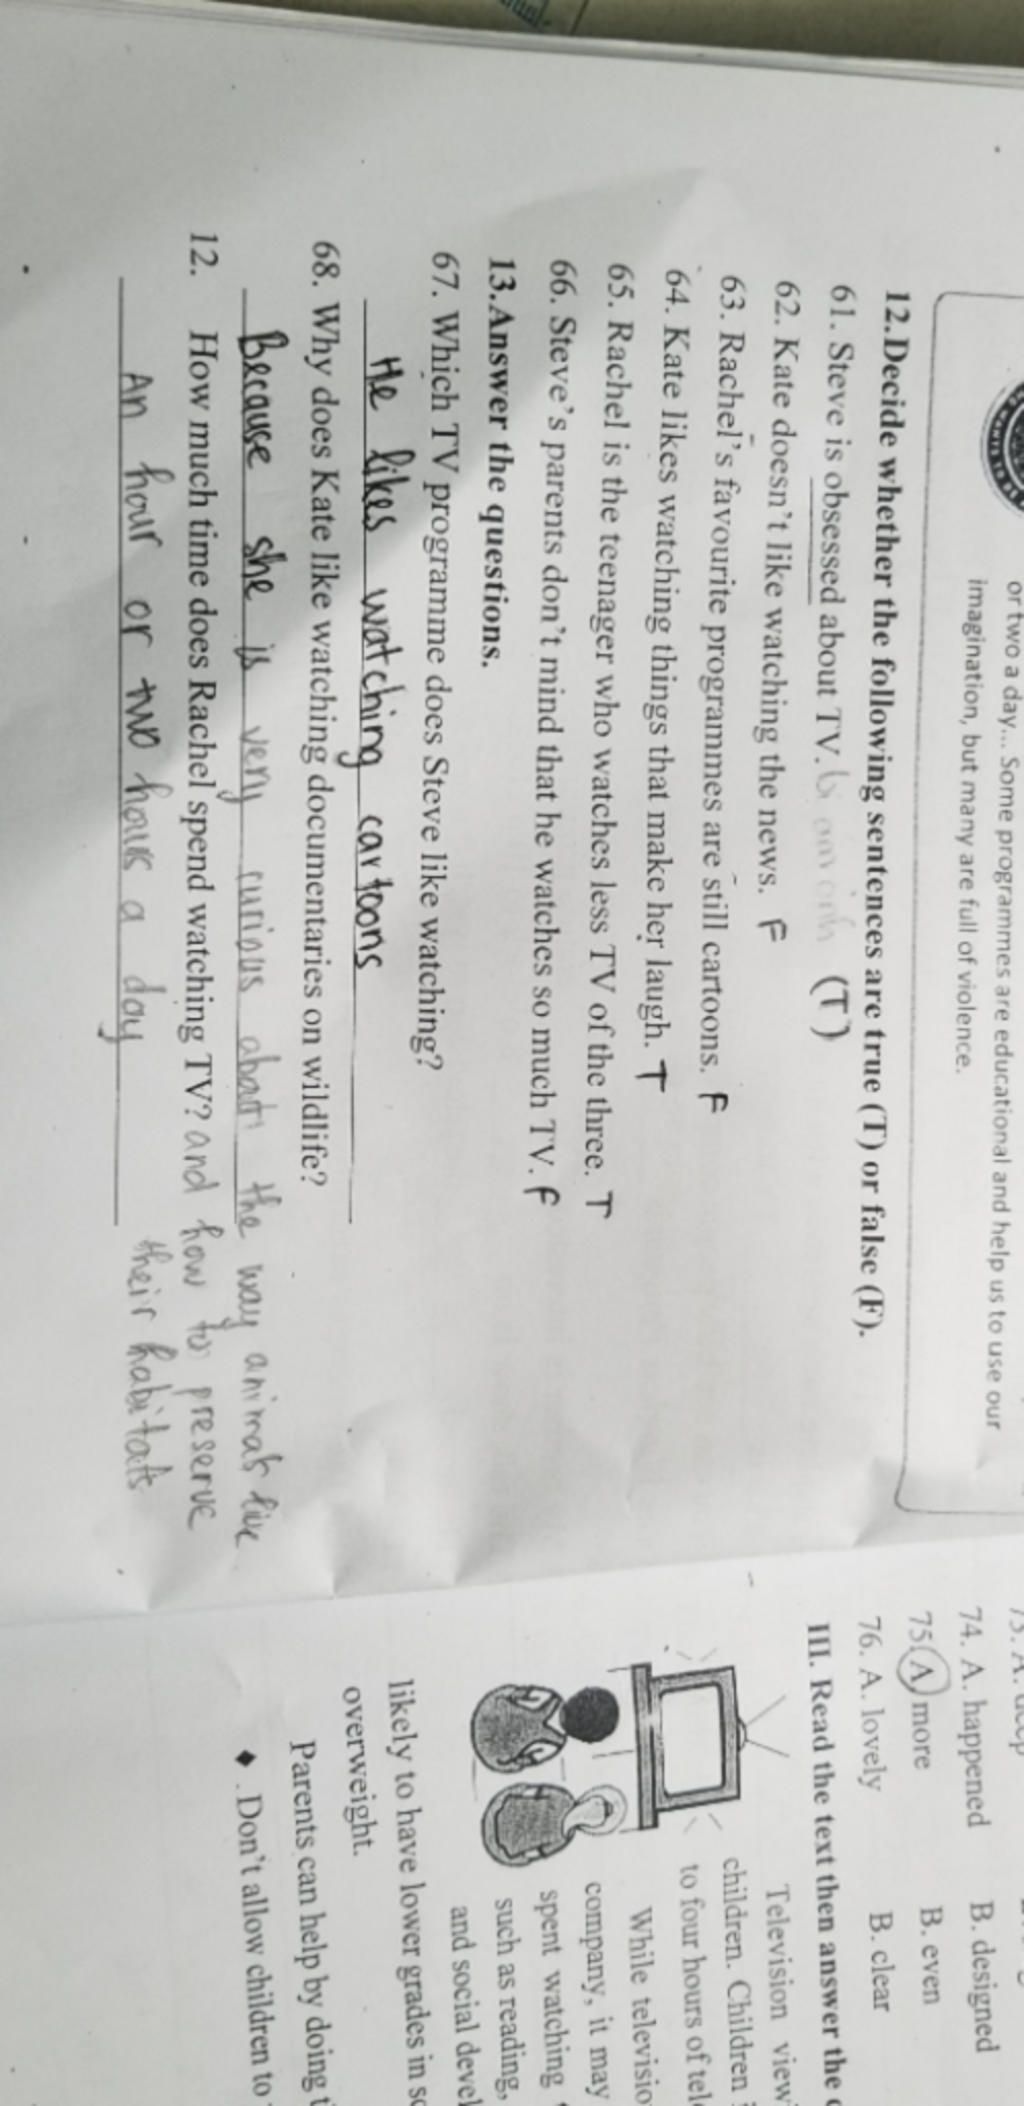 or two a day... Some programmes are educational and help us to use our
imagination, but many are full of violence.
12.Decide whether the following sentences are true (T) or false (F).
61. Steve is obsessed about TV. (T)
62. Kate doesn't like watching the news. F
63. Rachel's favourite programmes are still cartoons. F
64. Kate likes watching things that make her laugh. T
65. Rachel is the teenager who watches less TV of the three. T
66. Steve's parents don't mind that he watches so much TV. F
13.Answer the questions.
67. Which TV programme does Steve like watching?
He likes watching cartoons
68. Why does Kate like watching documentaries on wildlife?
Because she is very curious about the way animals live
12. How much time does Rachel spend watching TV? and how to preserve
their habitats
An hour or two hours a day
74. A. happened B. designed
75. A more B. even
76. A. lovely B. clear
III. Read the text then answer the
Television view
children. Children
to four hours of tel
While televisio
company, it may
spent watching
such as reading,
and social devel
likely to have lower grades in sc
overweight.
Parents can help by doing t
♦ .Don't allow children to